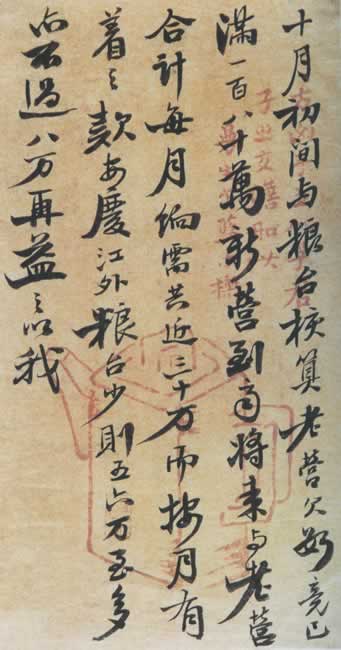 十月初间与粮台核算老营欠数竟已
滿一百八十萬新营到南將来与老营
合计每月餉需共近三十万而按月有
着之款安慶江外粮台少則五六万至多
亦不過八万再益之以我